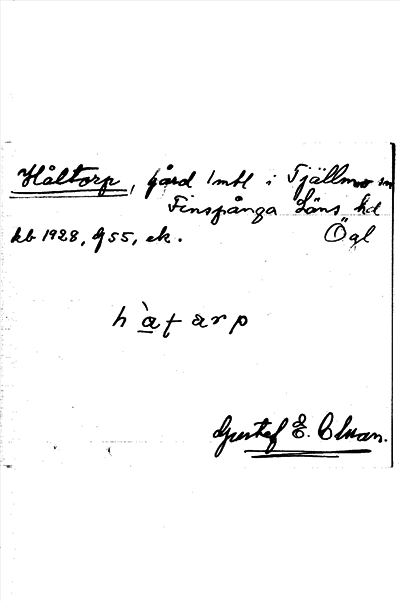 Håltorp, gård 1 mtl i Tjällmo sn
Finspånga läns hd
kb 1928, g 55, ek. Ögl
h à̱ t a r p
Gustaf E. Elwan.